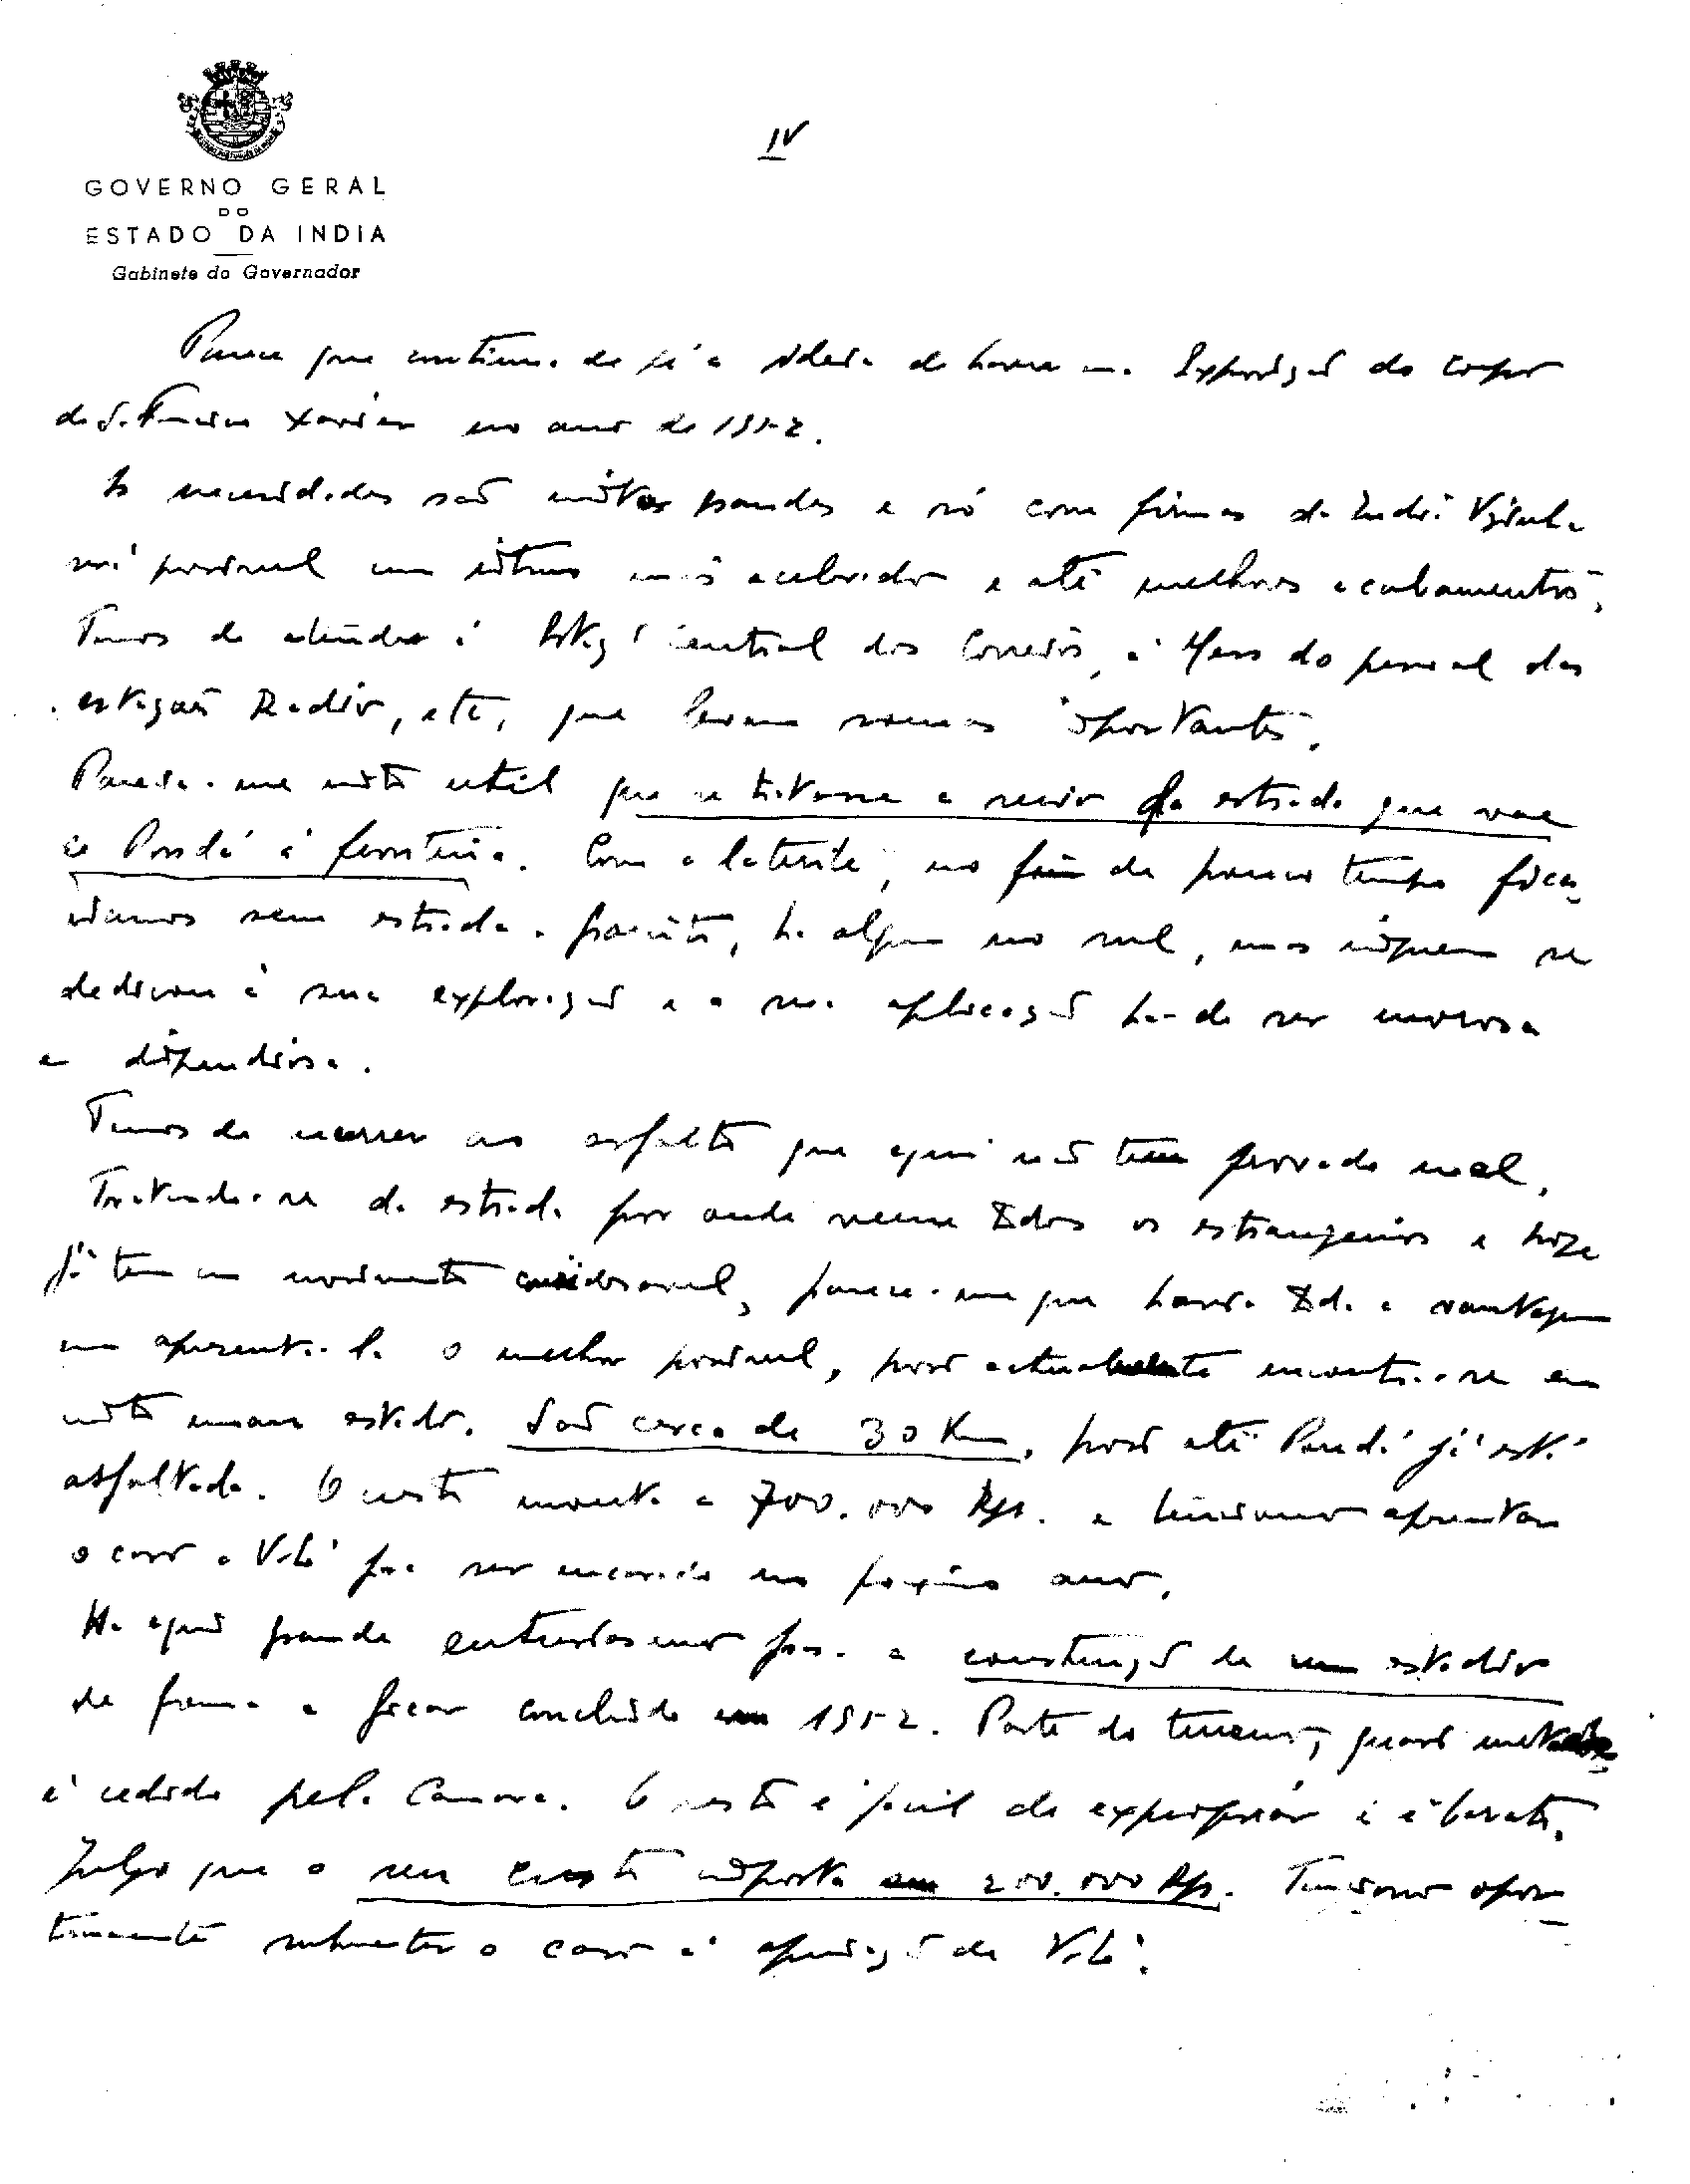 IV
GOVERNO GERAL
DO
ESTADO DA INDIA
Gabinete do Governador
Parece que continua de pé a ideia de haver uma Exposição do corpo
de S. Francisco Xavier no ano de 1952.
As necessidades são muitas grandes e só com firmas da India Vizinha
será possivel um ritmo mais acelerado e até melhores acabamentos.
Temos de atender á Estação Central dos Correios, á Mess do pessoal das
estações Radio, etc, que levam somas importantes.
Parecia-me muito util que se tratasse a serio da estrada que vae
de Pondá á fronteira. Com a laterite, no fim de pouco tempo fica-
riamos sem estrada. Granito, ha algum no sul, mas ninguem se
dedicou á sua exploração e a sua aplicação ha-de ser morosa
e dispendiosa.
Temos de recorrer ao asfalto que aqui não tem provado mal.
Tratando-se da estrada por onde veem todos os estrangeiros e hoje
já tem um movimento consideravel, parece-me que havia toda a vantagem
em apresenta-la o melhor possivel, pois actualmente encontra-se em
muito mau estado. São cerca de 30 Km, pois até Pondá já está
asfaltada. O custo monta a 700.000 Rps. e tenciono apresentar
o caso a V. para ser encarado no proximo ano.
Ha aqui grande entusiasmo para a construção de um estadio
de forma a ficar concluido em 1952. Parte do terreno, quasi metade
é cedido pela Camara. O resto é facil de expropriar e é barato.
Julgo que o seu custo importa em 200.000 Rps. Tenciono opor-
tunamente submeter o caso á apreciação de V.